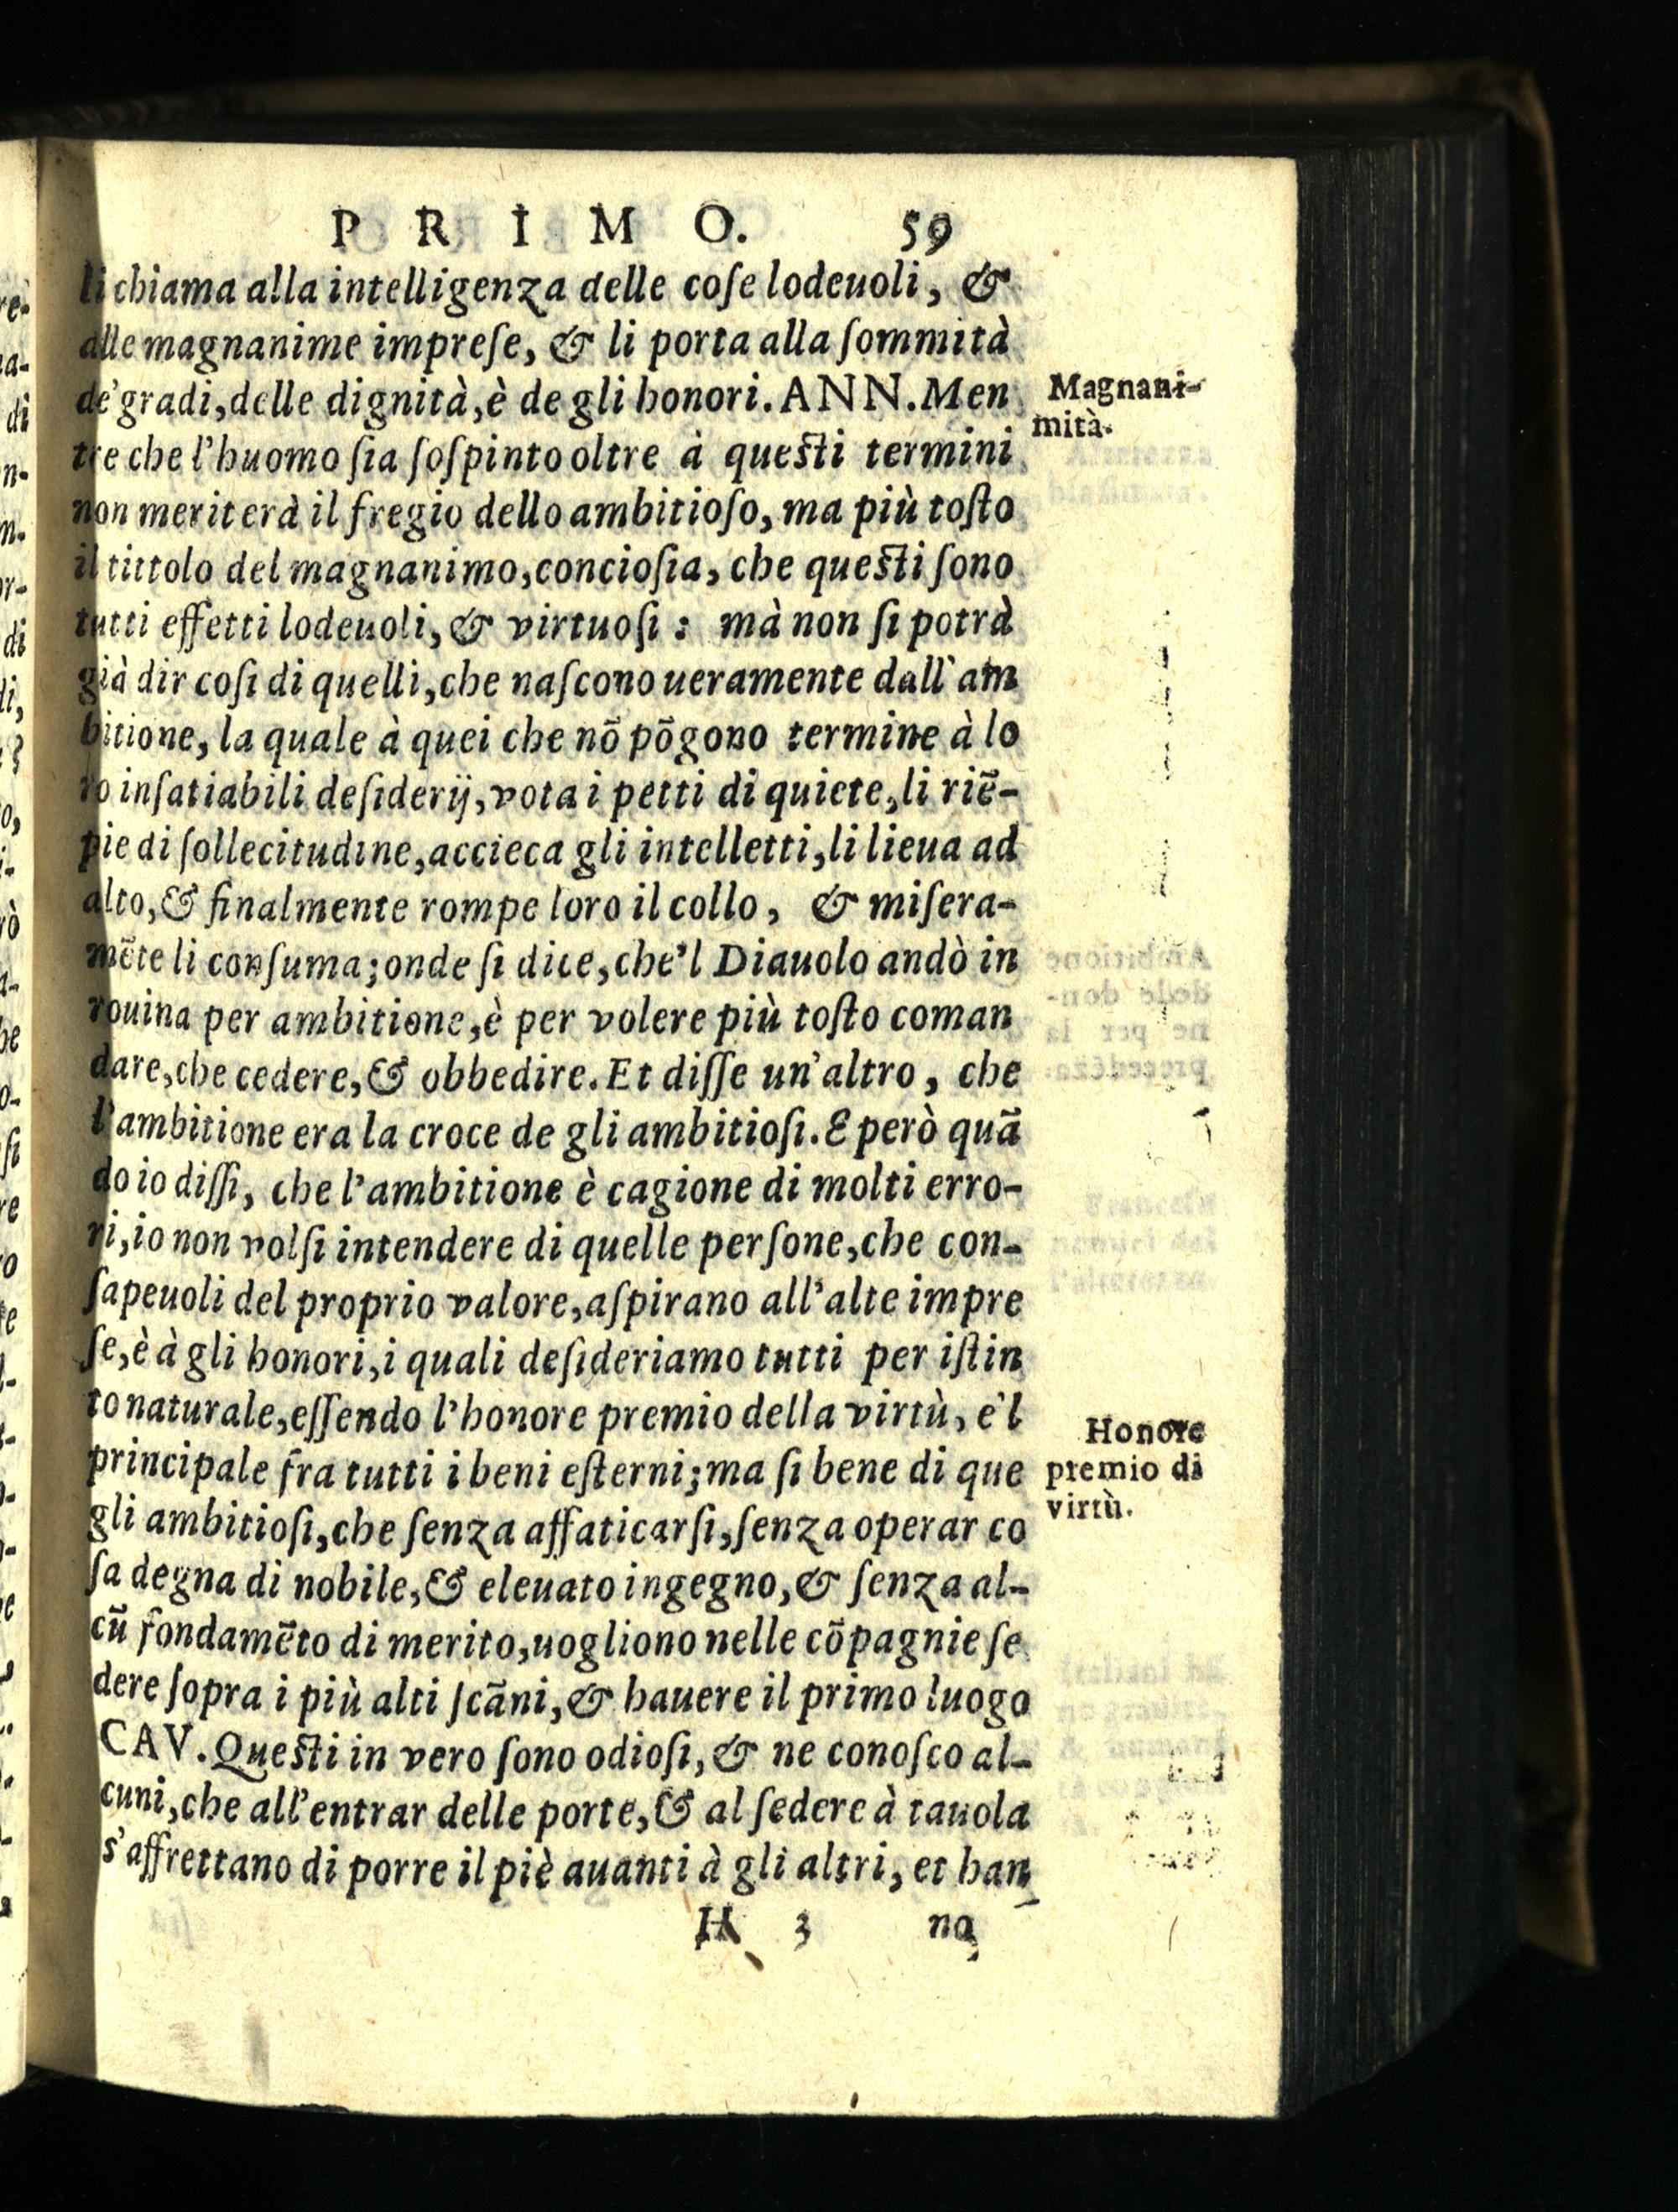 PRIMO. 59
li chiama alla intelligenza delle coſe lodeuoli, &
alle magnanime impreſe, & li porta alla ſommità
de' gradi, delle dignità, è de gli honori. ANN. Men
tre che l'huomo ſia ſoſpinto oltre à queſti termini
non meriterà il fregio dello ambitioſo, ma più toſto
il tittolo del magnanimo, concioſia, che queſti ſono
tutti effetti lodeuoli, & virtuoſi: mà non ſi potrà
già dir coſi di quelli, che naſcono ueramente dall'am
bitione, la quale à quei che nõ põgono termine à lo
ro inſatiabili deſiderij, vota i petti di quiete, li riẽ-
pie di ſollecitudine, accieca gli intelletti, li lieua ad
alto, & finalmente rompe loro il collo, & miſera-
mẽte li conſuma; onde ſi dice, che'l Diauolo andò in
rouina per ambitione, è per volere più toſto coman
dare, che cedere, & obbedire. Et diſſe un'altro, che
l'ambitione era la croce de gli ambitioſi. E però quã
do io diſſi, che l'ambitione è cagione di molti erro-
ri, io non volſi intendere di quelle perſone, che con-
ſapeuoli del proprio valore, aſpirano all'alte impre
ſe, è à gli honori, i quali deſideriamo tutti per iſtin
to naturale, eſſendo l'honore premio della virtù, e'l
principale fra tutti i beni eſterni; ma ſi bene di que
gli ambitioſi, che ſenza affaticarſi, ſenza operar co
ſa degna di nobile, & eleuato ingegno, & ſenza al-
cũ fondamẽto di merito, uogliono nelle cõpagnie ſe
dere ſopra i più alti ſcãni, & hauere il primo luogo
CAV. Queſti in vero ſono odioſi, & ne conoſco al-
cuni, che all'entrar delle porte, & al ſedere à tauola
s'affrettano di porre il piè auanti à gli altri, et han
H 3 no
Magnani-
mità.
Honore
premio di
virtù.